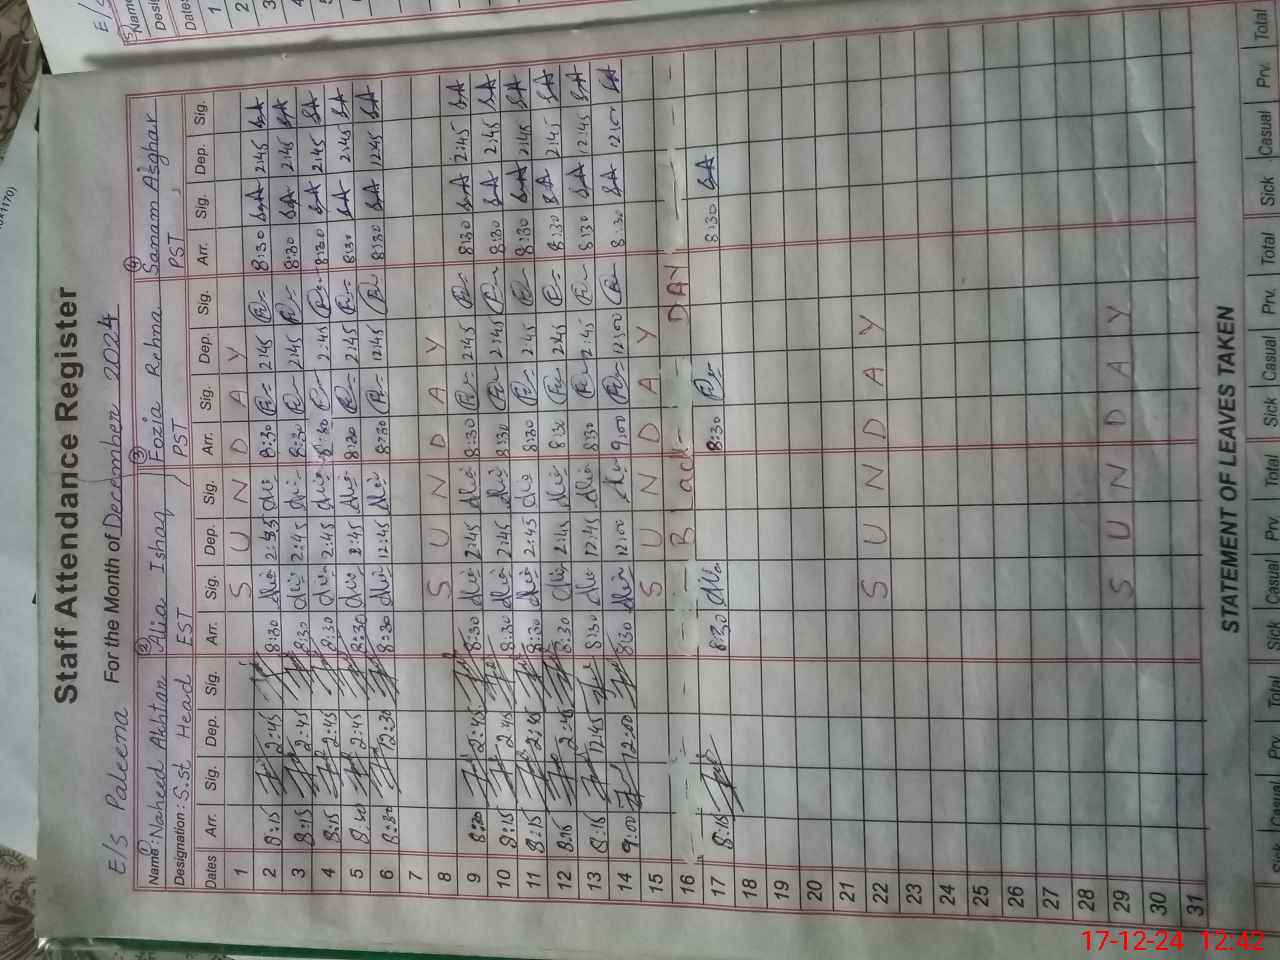 Staff Attendance Register
E/S Paleema For the Month of December 2024
① Name: Naheed Akhtar ② Alia Ishaq ③ Fozia Rehma ④ Sanam Asghar
Designation: S.st Head EST PST PST
Dates Arr. Sig. Dep. Sig. Arr. Sig. Dep. Sig. Arr. Sig. Dep. Sig. Arr. Sig. Dep. Sig.
1 S U N D A Y
2 8:15 2:45 8:30 8:30 2:45 8:30 SA 2:45 SA
3 8:15 2:45 8:30 2:45 8:30 2:45 8:30 SA 2:45 SA
4 8:15 2:45 8:30 2:45 8:30 2:45 8:30 SA 2:45 SA
5 8:30 2:45 8:30 2:45 8:30 2:45 8:30 SA 2:45 SA
6 8:30 12:30 8:30 12:45 8:30 12:45 8:30 SA 12:45 SA
7
8 S U N D A Y
9 8:30 2:45 8:30 2:45 8:30 2:45 8:30 SA 2:45 SA
10 8:15 2:45 8:30 2:45 8:30 2:45 8:30 SA 2:45 SA
11 8:15 2:45 8:30 2:45 8:30 2:45 8:30 SA 2:45 SA
12 8:15 2:45 8:30 2:45 8:30 2:45 8:30 SA 2:45 SA
13 8:15 12:45 8:30 12:45 8:30 2:45 8:30 SA 12:45 SA
14 9:00 12:00 8:30 12:00 9:00 12:00 8:30 SA 12:00 SA
15 S U N D A Y
16 Black DAY
17 8:15 8:30 8:30 8:30 SA
18
19
20
21
22 S U N D A Y
23
24
25
26
27
28
29 S U N D A Y
30
31
STATEMENT OF LEAVES TAKEN
Sick Casual Prv. Total Sick Casual Prv. Total Sick Casual Prv. Total Sick Casual Prv. Total
E/S
Name
Desig
Dates
1
2
3
4
5
17-12-24 12:42